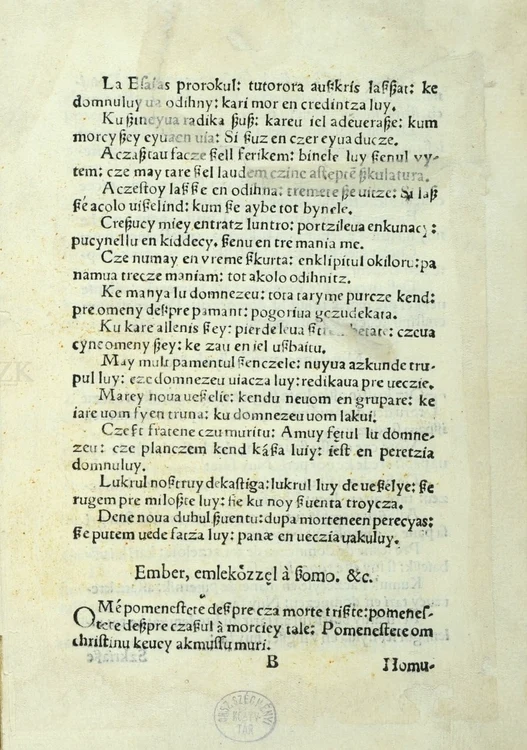 La Esaias prorokul: tutorora auſkris laſſſat: ke
domnuluy ua odihny: kari mor en credintza luy.
Kuſſineyua radika ſſuſſ: kareu iel adeueraſſe: kum
morcy ſſey eyuaen uia: Si ſſuz en czer eyua ducze.
Aczaſtau facze ſſell ferikem: binele luy ſſenul vy-
tem: cze may tare ſſel laudem czine aſtepte ſſkulatura.
Aczeſtoy laſſſe en odihna: tremete ſſe uitze: Si laſſ
ſſé acolo uiſſelind: kum ſſe aybe tot bynele.
Creſſucy miey entratz luntro: portzileua enkunacy:
pucynellu en kiddecy. ſſenu en tre mania me.
Cze numay en vreme ſſkurta: enklipitul okiloru: pa
namua trecze maniam: tot akolo odihnitz.
Ke manya lu domnezeu: tota taryme purcze kend:
pre omeny deſſpre pamant: pogoriua gczudekata.
Ku kare allenis ſſey: pierdeleua betate: czeua
cyne omeny ſſey: ke zau en iel uſſbaitu.
May mult pamentul ſſenczele: nuyua azkunde tru-
pul luy: eze domnezeu uiacza luy: redikaua pre ueczie.
Marey noua ueſſelie: kendu neuom en grupare: ke
iare uom fy en truna: ku domnezeu uom lakui.
Czeſt fratene czu muritu: A muy fetul lu domne-
zeu: cze planczem kend káſſa luiy: ieſt en peretzia
domnuluy.
Lukrul noſtruy dekaſtiga: lukrul luy de ueſſelye: ſſe
rugem pre miloſſte luy: fie ku noy ſſuenta troycza.
Dene noua duhul ſſuentu: dupa morteneen perecyas:
ſſe putem uede fatza luy: panæ en ueczia uakuluy.
Ember, emleközzel à ſſomo. &c.
OMé pomeneſtere deſſpre cza morte triſte: pomeneſ-
tere deſſpre czaſſul à morciey tale: Pomeneſtere om
chriſtinu keucy akmuſſu muri.
B
Homu-
ORSZ. SZÉCHÉNYI
KÖNYV-
TÁR